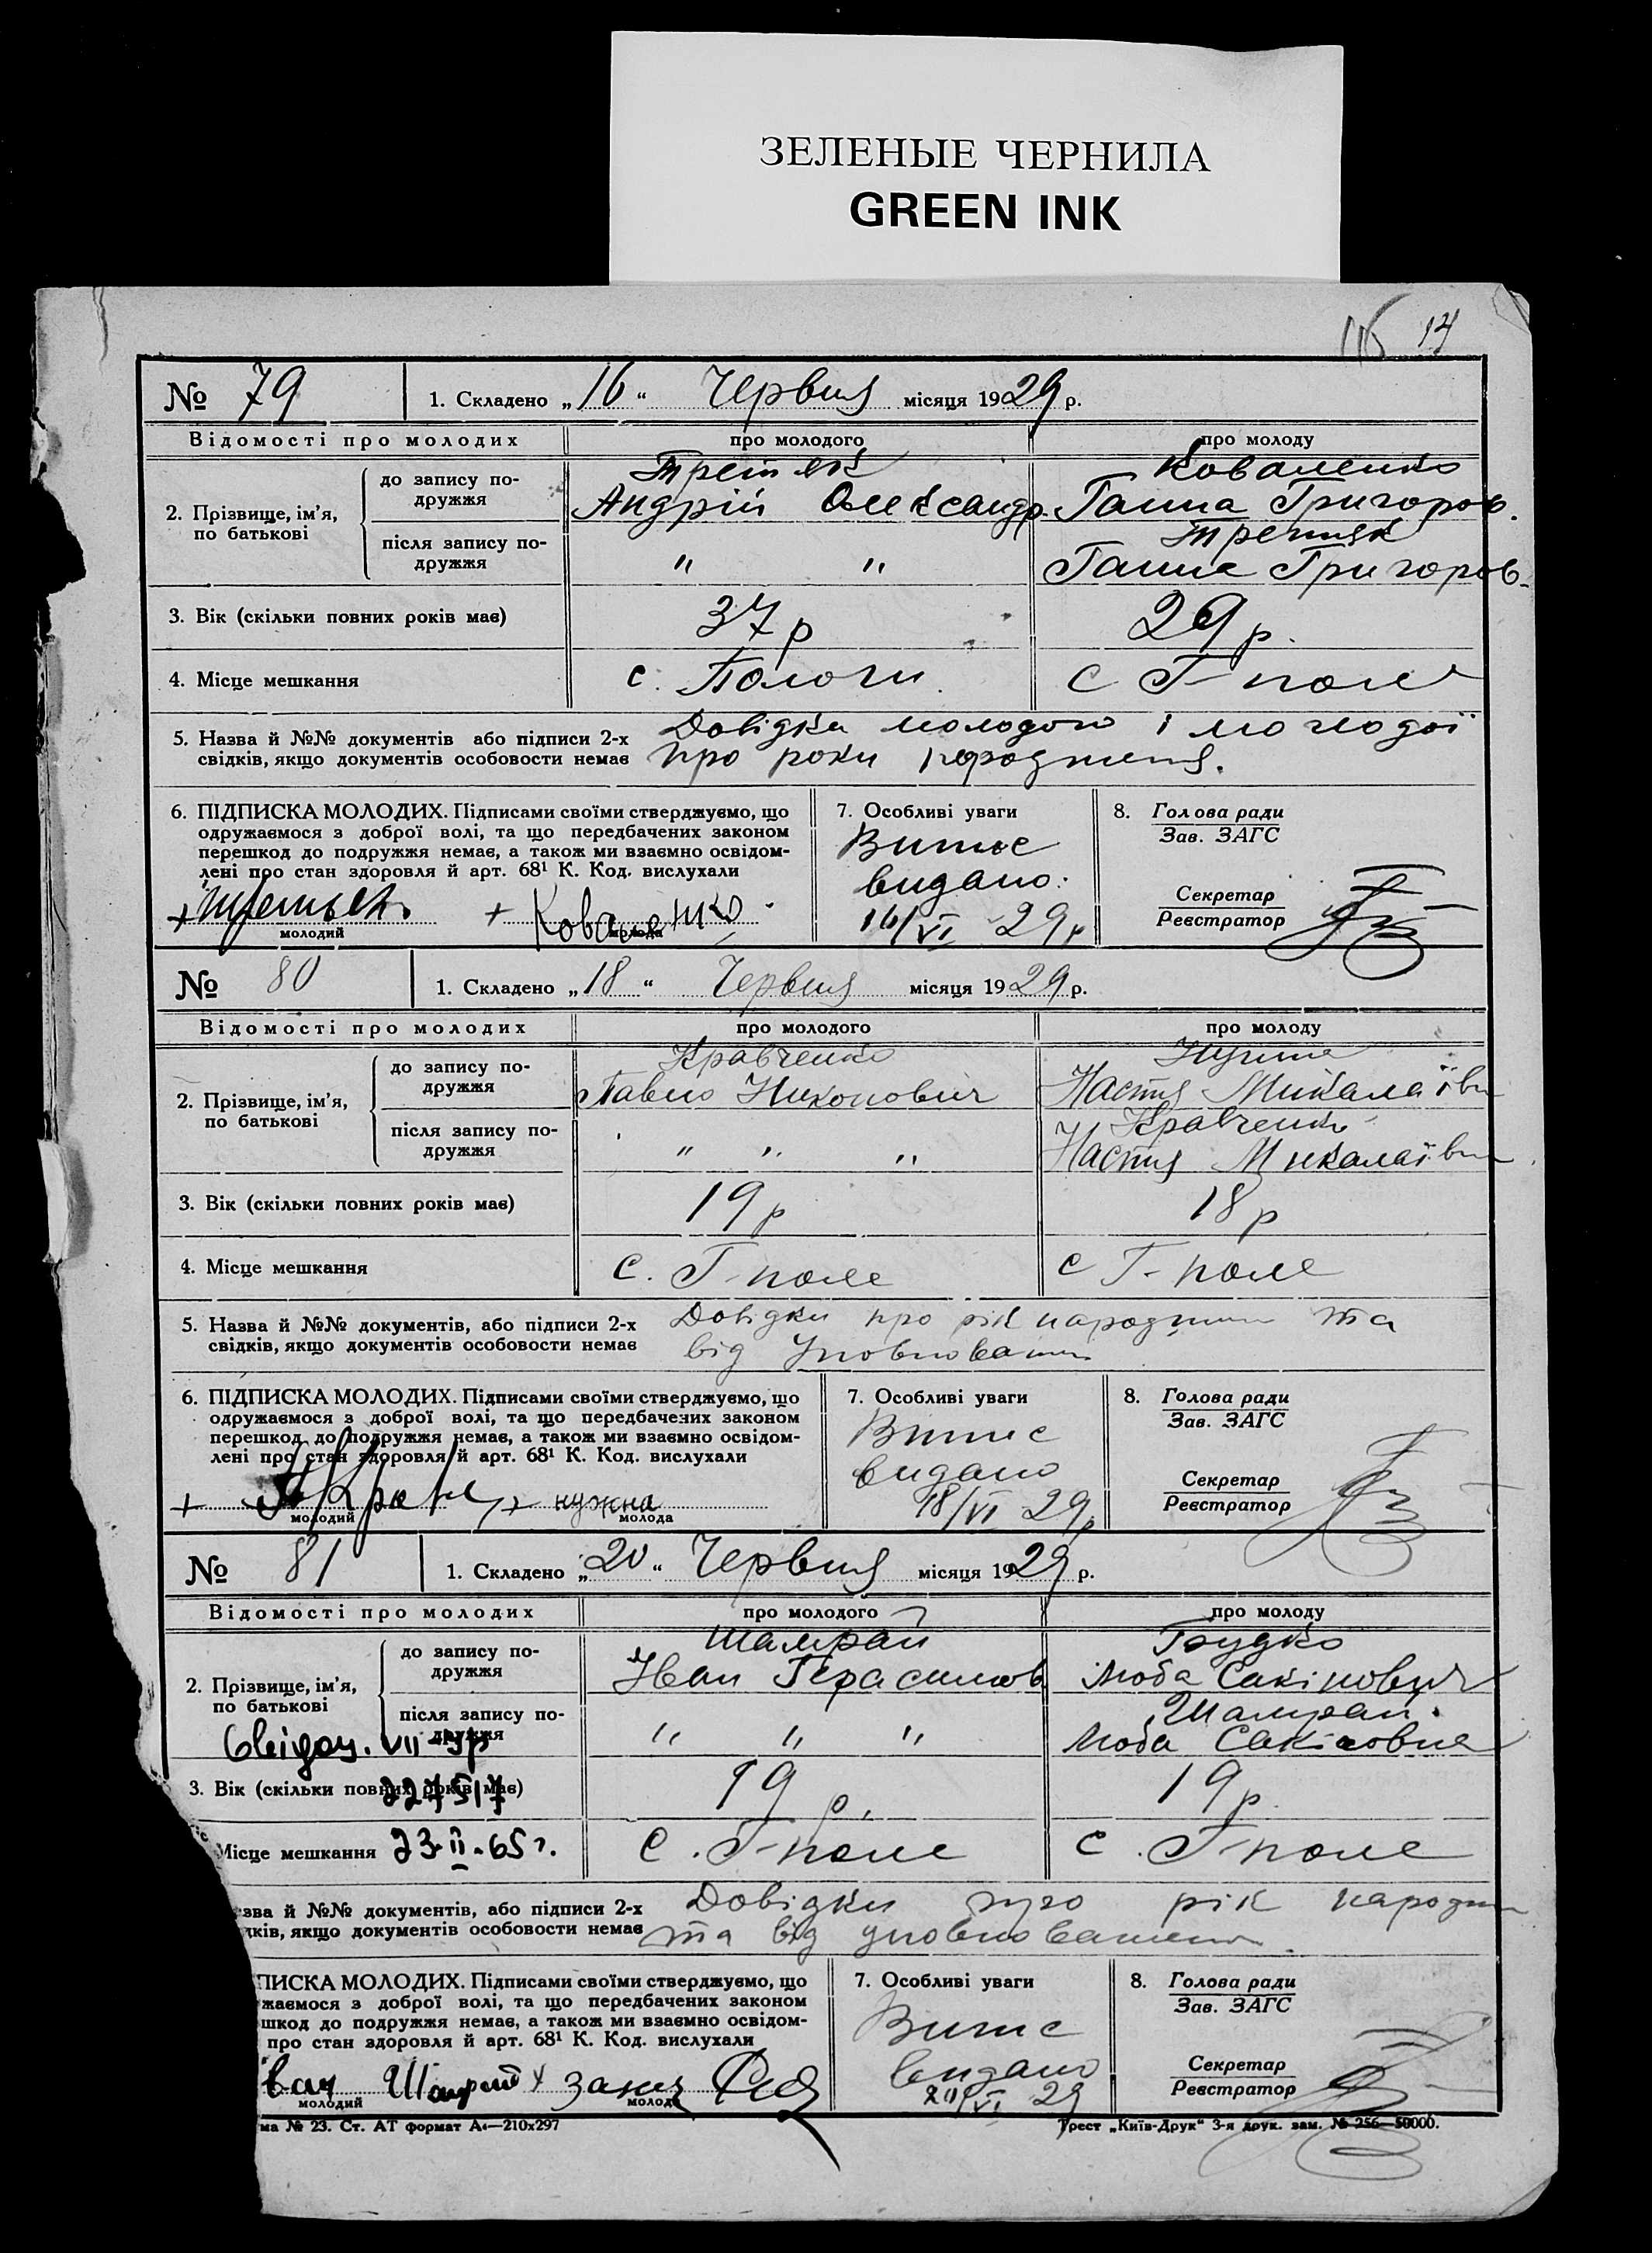 ЗЕЛЕНЫЕ ЧЕРНИЛА
GREEN INK
№ 79 1. Складено „16“ Червня місяця 1929 р.
Відомості про молодих про молодого про молоду
2. Прізвище, ім’я, по батькові
до запису подружжя Третяк Коваленко
Андрій Олександр. Ганна Григоров.
після запису подружжя " " Третяк
Ганна Григоров.
3. Вік (скільки повних років має) 37 р 29 р.
4. Місце мешкання с. Пологи с Г-поле
5. Назва й №№ документів або підписи 2-х Довідка молодого і молодої
свідків, якщо документів особовости немає про роки народження.
6. ПІДПИСКА МОЛОДИХ. Підписами своїми стверджуємо, що
одружаємося з доброї волі, та що передбачених законом
перешкод до подружжя немає, а також ми взаємно освідом-
лені про стан здоровля й арт. 68¹ К. Код. вислухали
+ Третьяк + Коваленко
молодий молода
7. Особливі уваги
Витяг
видано.
16/VI 29 р
8. Голова ради
Зав. ЗАГС
Секретар
Реєстратор
№ 80 1. Складено „18“ Червня місяця 1929 р.
Відомості про молодих про молодого про молоду
2. Прізвище, ім’я, по батькові
до запису подружжя Кравченко
Павло Никонович Настя Миколаївн
після запису подружжя " " " Кравченко
Настя Миколаївн
3. Вік (скільки повних років має) 19 р 18 р
4. Місце мешкання с. Г-поле с Г-поле
5. Назва й №№ документів, або підписи 2-х Довідки про рік народження та
свідків, якщо документів особовости немає від Уповноважен
6. ПІДПИСКА МОЛОДИХ. Підписами своїми стверджуємо, що
одружаємося з доброї волі, та що передбачених законом
перешкод до подружжя немає, а також ми взаємно освідом-
лені про стан здоровля й арт. 68¹ К. Код. вислухали
+ + нужна
молодий молода
7. Особливі уваги
Випис
видано
18/VI 29 р
8. Голова ради
Зав. ЗАГС
Секретар
Реєстратор
№ 81 1. Складено „20“ Червня місяця 1929 р.
Відомості про молодих про молодого про молоду
2. Прізвище, ім’я, по батькові
до запису подружжя Шамрай Грудко
Иван Герасимов Люба
після запису подружжя " " " Шамрай.
Люба
Свідоц. VII-ЯР
227517
23-II-65 г.
3. Вік (скільки повних років має) 19 р. 19 р
Місце мешкання с. Г-поле с. Г-поле
зва й №№ документів, або підписи 2-х Довідки про рік народжен
дків, якщо документів особовости немає та від уповноважен
ПИСКА МОЛОДИХ. Підписами своїми стверджуємо, що
жаємося з доброї волі, та що передбачених законом
шкод до подружжя немає, а також ми взаємно освідом-
про стан здоровля й арт. 68¹ К. Код. вислухали
ван Шамрай +
молодий молода
7. Особливі уваги
Випис
видано
20/VI 29
8. Голова ради
Зав. ЗАГС
Секретар
Реєстратор
ма № 23. Ст. АТ формат А₄—210х297 Трест „Київ-Друк“ 3-я друк. зам. № 256—50000.